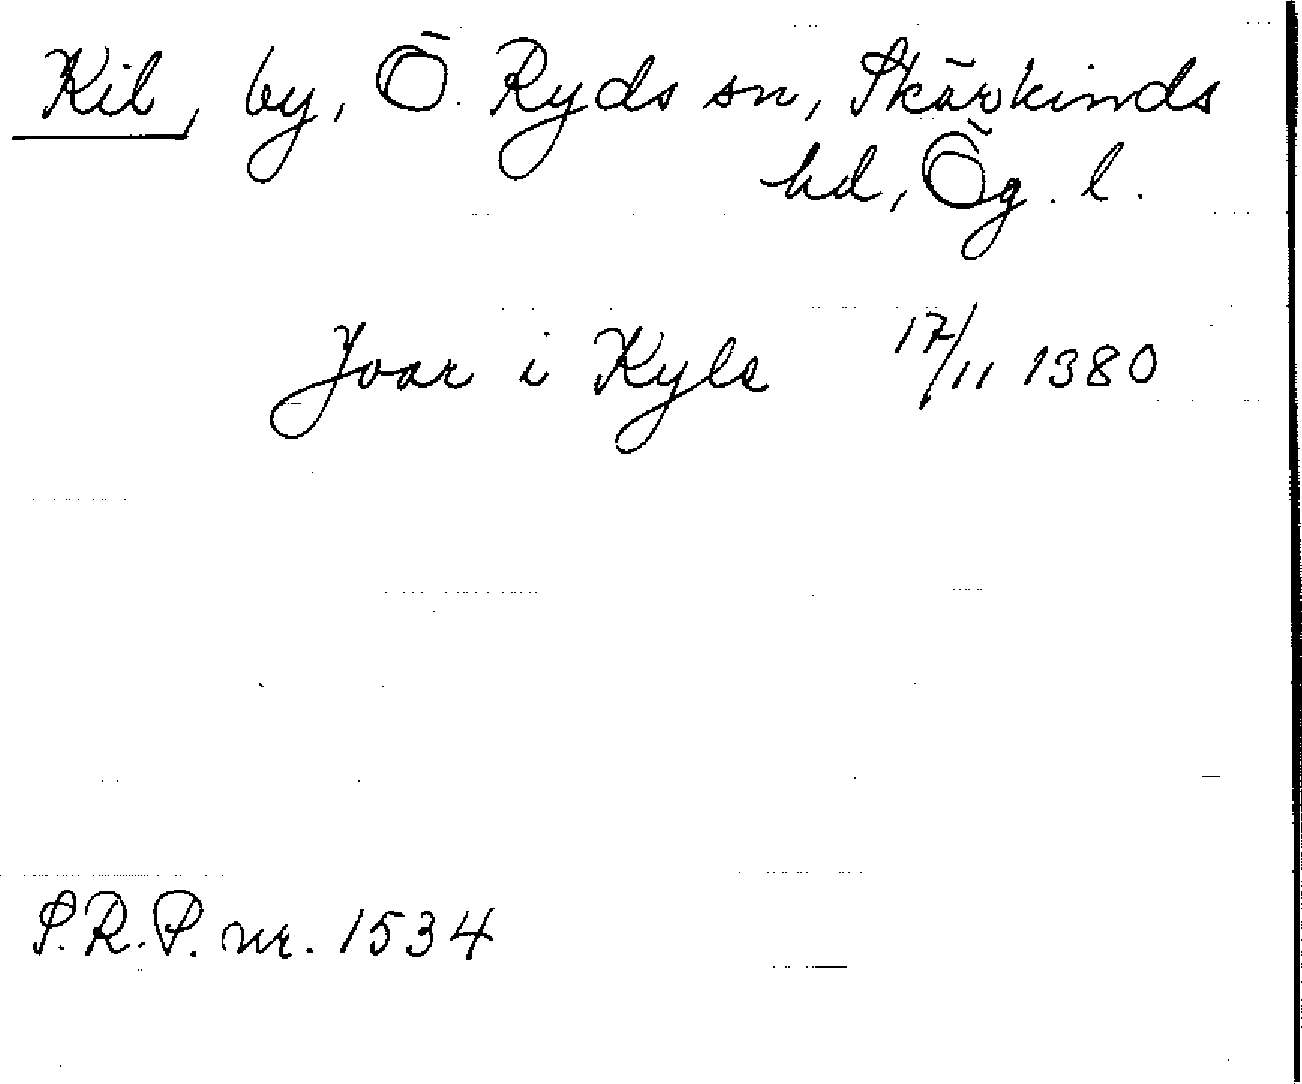 Kil, by, Ö. Ryds sn, Skärkinds
hd, Ög. l.
Jvar i Kyls 17/11 1380
S.R.P. nr. 1534